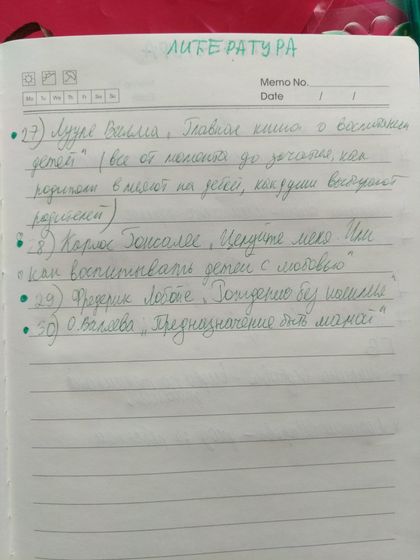 ЛИТЕРАТУРА
Memo No.
Mo Tu We Th Fr Sa Su
Date / /
27) Лууле Виилма „Главная книга о воспитании
детей" (все от момента до зачатья, как
родители влияют на детей, как души выбирают
родителей)
28) Карлос Гонсалес „Целуйте меня. Или
как воспитывать детей с любовью"
29) Фредерик Лобойе „Рождение без насилия"
30) О.Валяева „Предназначение быть мамой"